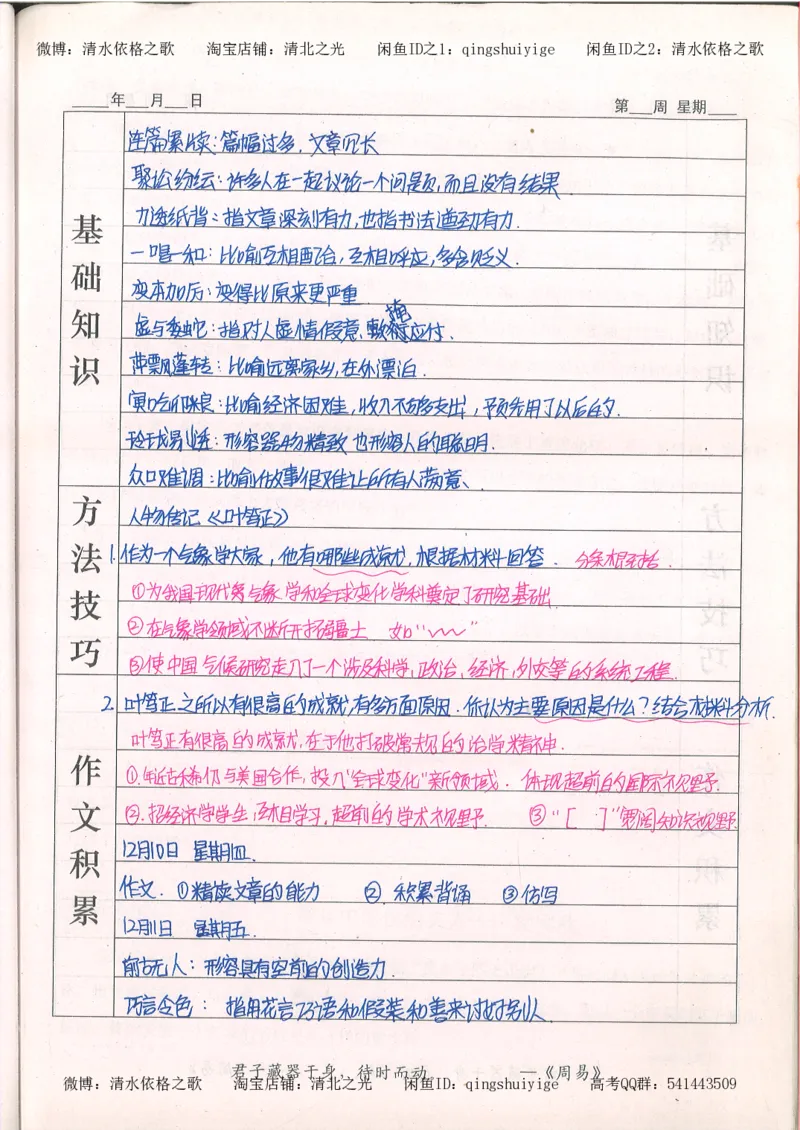 微博：清水依格之歌 淘宝店铺：清北之光 闲鱼ID之1：qingshuiyige 闲鱼ID之2：清水依格之歌
____年___月___日 第___周 星期____
基础知识
连篇累牍：篇幅过多，文章冗长
聚讼纷纭：许多人在一起议论一个问题，而且没有结果．
力透纸背：指文章深刻有力，也指书法遒劲有力．
一唱一和：比喻互相配合，互相呼应，多含贬义．
变本加厉：变得比原来更严重．
虚与委蛇：指对人虚情假意，敷衍应付．
萍飘蓬转：比喻远离家乡，在外漂泊．
寅吃卯粮：比喻经济困难，收入不够支出，预先用了以后的．
玲珑剔透：形容器物精致 也形容人的聪明．
众口难调：比喻做事很难让所有人满意、
方法技巧
人物传记《叶笃正》
1.作为一个气象学大家，他有哪些成就，根据材料回答． 分条概括．
①为我国现代气象学和全球变化学科奠定了研究基础．
②在气象学领域不断开拓疆土 如“
③使中国气候研究走入了一个涉及科学，政治，经济，外交等的系统工程．
作文积累
2.叶笃正之所以有很高的成就，有多方面原因．你认为主要原因是什么？结合材料分析．
叶笃正有很高的成就，在于他打破常规的治学精神．
①.年近古稀仍与美国合作，投入“全球变化”新领域．体现超前的国际视野．
②．招经济学学生，互相学习，超前的学术视野． ③“［ ］”宽阔知识视野．
12月10日 星期四．
作文．①精读文章的能力 ②．积累背诵 ③仿写
12月11日 星期五．
前古无人：形容具有空前的创造力．
巧言令色：指用花言巧语和假装和善来讨好别人．
君子藏器于身，待时而动． ——《周易》
微博：清水依格之歌 淘宝店铺：清北之光 闲鱼ID：qingshuiyige 高考QQ群：541443509